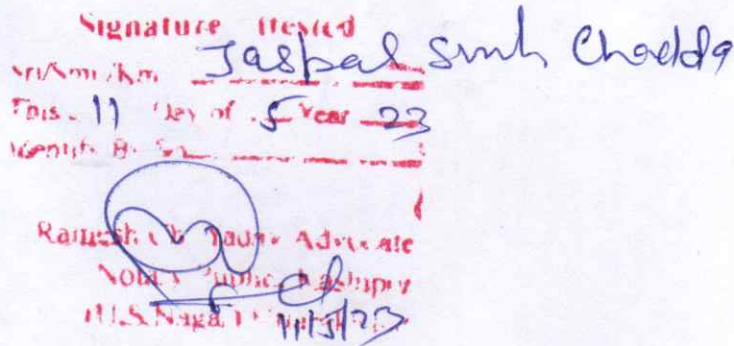 Signature ttested
Sri/Smt./Km. Jaspal Sinh Chadda
This 11 Day of 5 Year 23
Identify By
Ramesh Ch Yadav Advocate
Notary Public, Kashipur
U.S.Naga
11/5/23